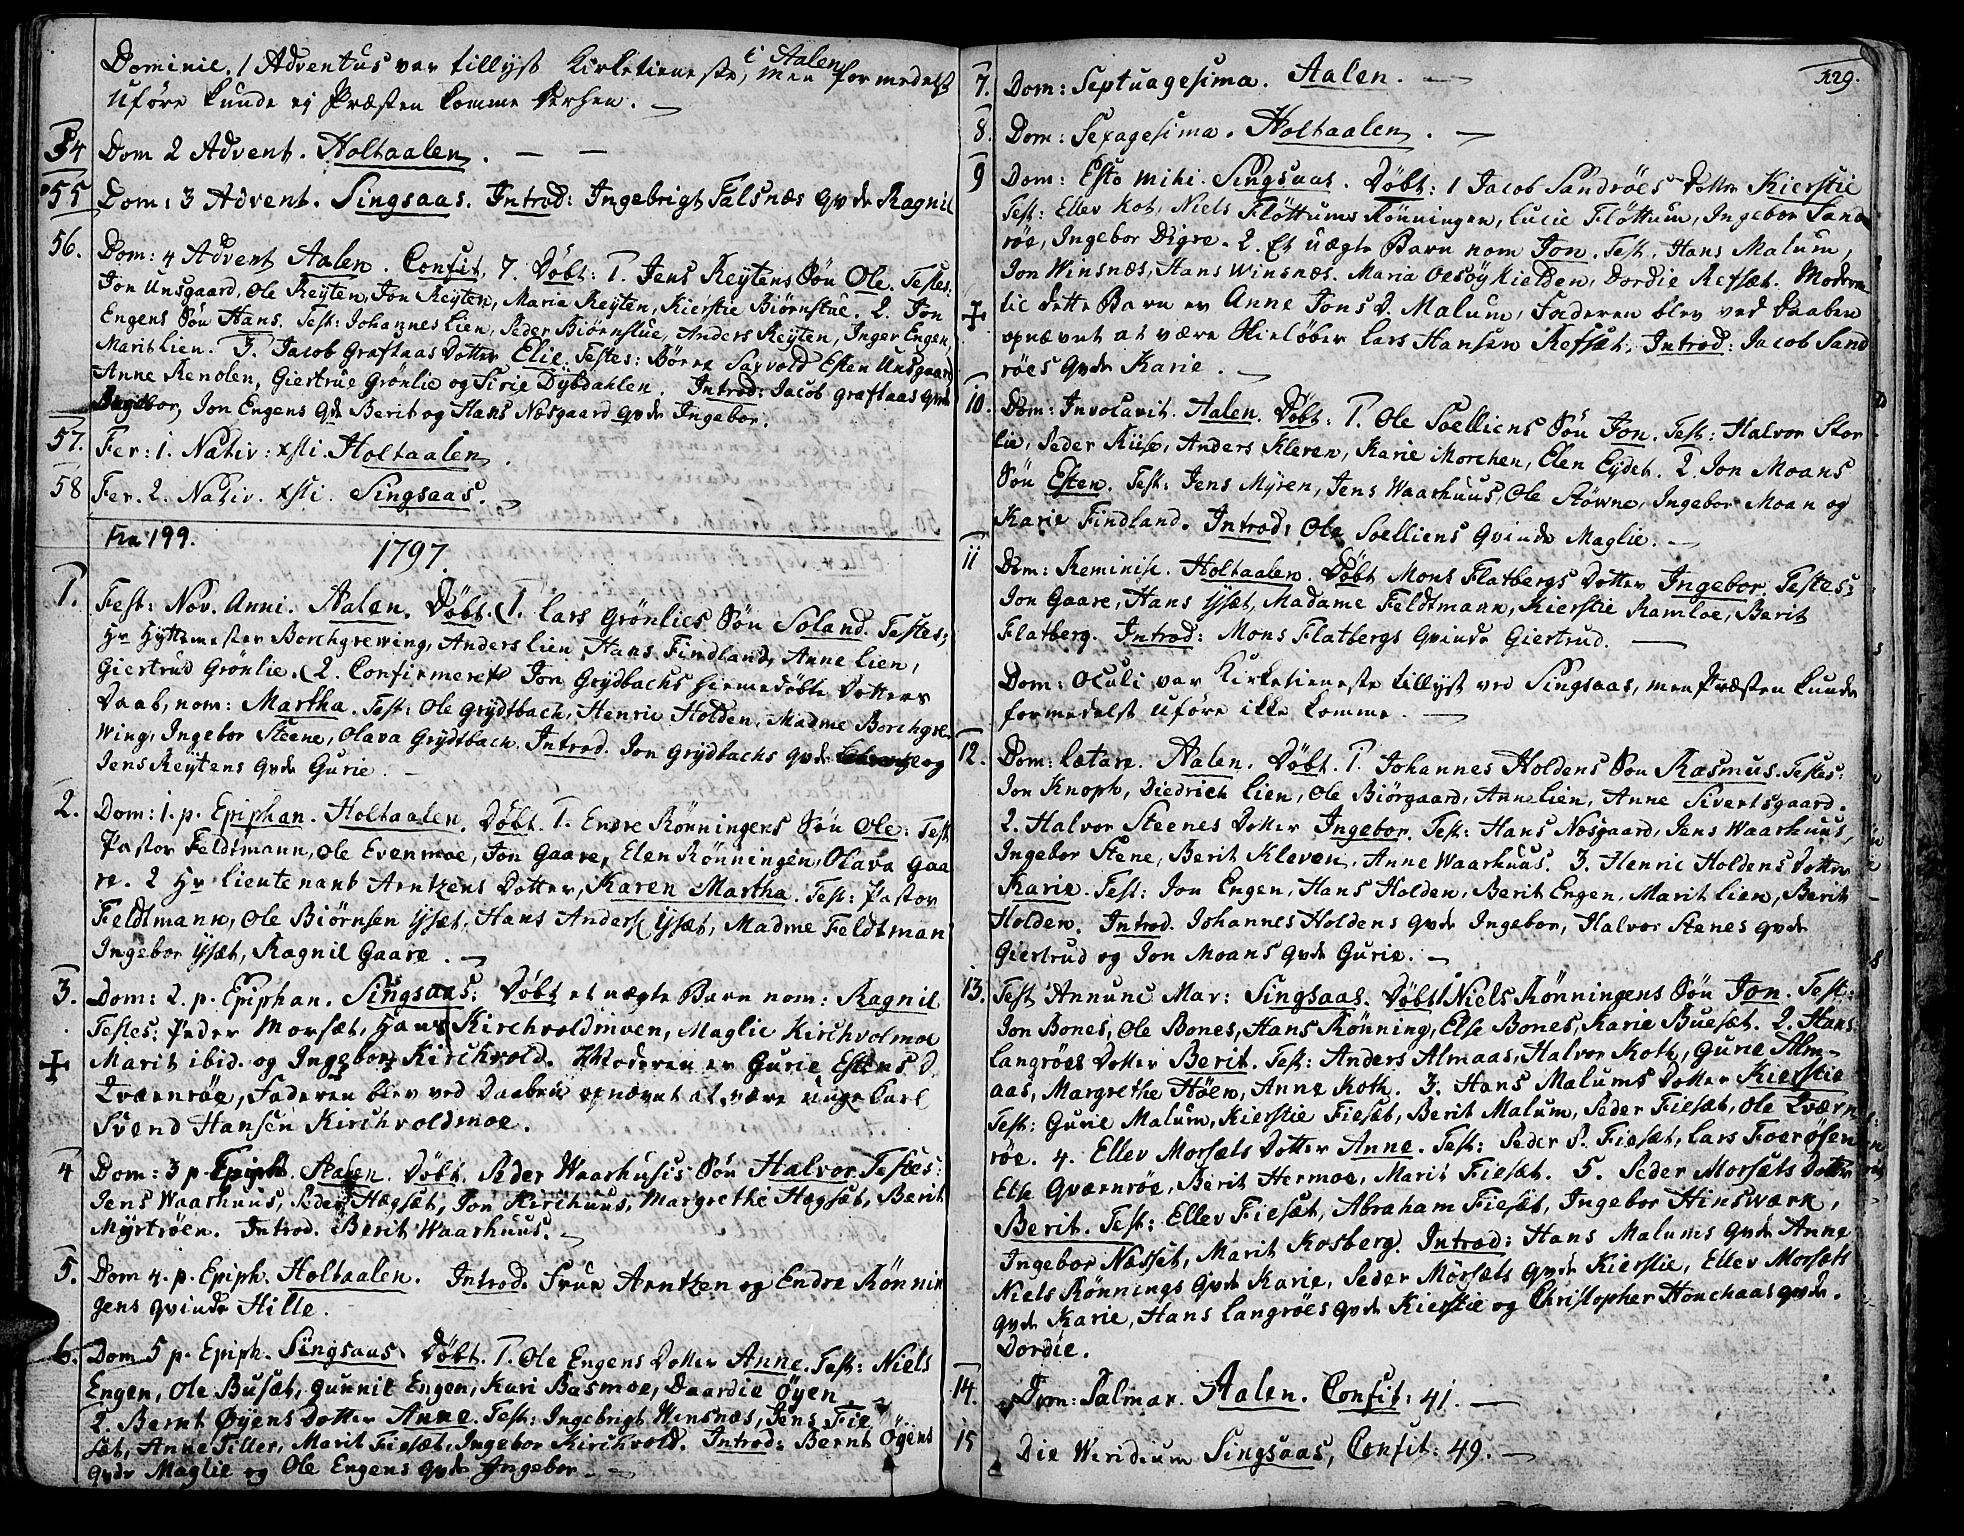 Dominic. 1 Adventus var tillyst Kirketieneste, i Aalen men formedelst
Uføre kunde ej Præsten komme derhen.
54 Dom 2 Advent. Holtaalen.
55 Dom: 3 Advent. Singsaas. Introd: Ingebrigt Talsnæs qvde Ragnil
56. Dom: 4 Advent Aalen. Confit. 7. Døbt: 1. Jens Reÿtens Søn Ole. Testes:
Jon Unsgaard, Ole Reÿten, Jon Reÿten, Marie Reÿten, Kierstie Biørnstue. 2. Jon
Engens Søn Hans. Test: Johannes Lien, Peder Biørnstue, Anders Reÿten, Inger Engen,
Marit Lien. 3. Jacob Graftaas Dotter Elie. Testes: Børre Saxvold Esten Unsgaard
Anne Renolen, Giertrue Grönlie og Sirie Dÿbdahlen. Introd: Jacob Graftaas qvde
Ingebor, Jon Engens qde Berit og Hans Næsgaard qvde Ingebor.
57. Fer: 1. Nativ: xsti. Holtaalen.
58 Fer. 2. Nativ. xsti. Singsaas.
Fra 199.
1797.
1. Fest: Nov. Anni. Aalen. Døbt. (1. Lars Grönlies Søn Soland. Testes;
Hr Hyttemester Borchgrewing, Anders Lien, Hans Findland, Anne Lien,
Giertrud Grönlie. (2. Confirmeret Jon Grÿdbachs hiemedøbte Dotters
Daab, nom: Martha. Test: Ole Grÿdtbach, Henric Holden, Madme Borchgre-
wing, Ingebor Steene, Olava Grÿdtbach. Introd. Jon Grÿdbachs qvde og
Jens Reÿtens qvde Gurie.
2. Dom: 1. p. Epiphan. Holtaalen. Døbt. 1. Endre Rönningens Søn Ole: Test
Pastor Feldtmann, Ole Evenmoe, Jon Gaare, Elen Rönningen, Olava Gaa
re. 2 Hr Lieutenant Arntzens Dotter, Karen Martha. Test: Pastor
Feldtmann, Ole Biörnsen ÿsæt, Hans Anders. ÿsæt, Madme Feldtman
Ingebor ÿsæt, Ragnil Gaare.
3. Dom: 2. p. Epiphan. Singsaas. Døbt et uægte Barn nom: Ragnil
Testes: Peder Morsæt, Hans Kirchvoldmoen, Maglie Kirchvolmoe
Marit ibid. og Ingebor Kirchvold. Moderen er Gurie Estens D.
Qværnröe, Faderen blev ved Daaben opnævnt at være unge Karl
Svend Hansen Kirchvoldmoe.
4 Dom: 3 p. Epiph. Aalen. Døbt. Peder Waarhusis Søn Halvor. Testes:
Jens Waarhuus, Peder Hægsæt, Jon Kirchuus, Margrethe Hægsæt, Berit
Mÿrtröen. Introd. Berit Waarhuus.
5. Dom 4. p. Epiph. Holtaalen. Introd. Frue Arntzen og Endre Rönnin
gens qvinde Hille.
6. Dom 5 p. Epiph. Singsaas. Døbt. 1. Ole Engens Dotter Anne. Test: Niels
Engen, Ole Busæt, Gunnil Engen, Kari Basmoe, Daardie Øÿen
2. Bernt Øÿens Dotter Anne. Test: Ingebrigt Winsnæs, Jens Fie
sæt, Anne Tiller, Marit Fiesæt, Ingebor Kirchvold. Introd: Bernt Öÿens
qvde Maglie og Ole Engens qvde Ingebor.
129.
7. Dom: Septuagesima. Aalen.
8. Dom: Sexagesima. Holtaalen.
9 Dom: Esto mihi. Singsaas. Døbt: 1 Jacob Sandröes Dotter Kierstie
Test: Ellev Kot, Niels Flöttums Rönningen, Lucie Flöttum, Ingebor Sand
röe, Ingebor Digre. 2. Et uægte Barn nom Jon. Test. Hans Malum,
Jon Winsnæs, Hans Winsnæs. Maria Oesöÿkielden, Dordie Refsæt. Moderen
til dette Barn er Anne Jons D. Malum, Faderen blev ved Daaben
opnævnt at være Skielöber Lars Hansen Refsæt. Introd: Jacob Sand
röes qvde Karie.
10. Dom: Invocavit. Aalen. Døbt: 1. Ole Soelliens Søn Jon. Test: Halvor Stor
lie, Peder Riise, Anders Kleven, Karie Morchen, Elen Eÿdet. 2. Jon Moans
Søn Esten. Test: Jens Mÿren, Jens Waarhuus, Ole Stöwne, Ingebor Moan og
Karie Findland. Introd: Ole Soelliens Qvinde Maglie.
11 Dom: Reminisc. Holtaalen. Døbt Mons Flatbergs Dotter Ingebor. Testes:
Jon Gaare, Hans ÿsæt, Madame Feldtmann, Kierstie Ramloe, Berit
Flatberg. Introd: Mons Flatbergs Qvinde Giertrud.
Dom: Oculi var Kirketieneste tillyst ved Singsaas, men Præsten kunde
formedelst uføre ikke komme.
12. Dom: Lætare. Aalen. Døbt. 1. Johannes Holdens Søn Rasmus. Testes:
Jon Knoph, Diedrich Lien, Ole Biörgaard, Anne Lien, Anne Sivertsgaard.
2. Halvor Steenes Dotter Ingebor. Test: Hans Næsgaard, Jens Waarhuus,
Ingebor Stene, Berit Kleven, Anne Waarhuus. 3. Henric Holdens Dotter
Karie. Test: Jon Engen, Hans Holden, Berit Engen, Marit Lien, Berit
Holden. Introd. Johannes Holdens qvde Ingebor, Halvor Stenes qvde
Giertrud og Jon Moans qvde Gurie.
13. Fest Annunc Mar: Singsaas. Døbt 1 Niels Rönningens Søn Jon. Test:
Jon Bones, Ole Bones, Hans Rönning, Else Bones, Karie Buesæt. 2. Hans
Langröes Dotter Berit. Test: Anders Almaas, Halvor Koth, Gurie Alm-
aas, Margrethe Höen, Anne Koth. 3. Hans Malums Dotter Kierstie
Test: Gune Malum, Kierstie Fiesæt, Berit Malum, Peder Fiesæt, Ole Qværn
röe. 4. Ellev Morsæts Dotter Anne. Test: Peder P. Fiesæt, Lars Foerösen
Else Qværnröe, Berit Hermoe, Marit Fiesæt. 5. Peder Morsæts Dotter
Berit. Test: Ellev Fiesæt, Abraham Fiesæt, Ingebor Hinsværk,
Ingebor Næsset, Marit Kosberg. Introd: Hans Malums qvde Anne
Niels Rönnings qvde Karie, Peder Mörsæts qvde Kierstie, Ellev Morsæts
qvde Karie, Hans Langröes qvde Kierstie og Christopher Honchaas qvde.
Dordie.
14. Dom: Palmar. Aalen. Confit: 41.
15 Die Viridium Singsaas, Confit: 49.